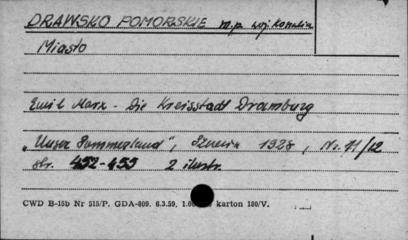 DRAWSKO POMORSKIE m.p. woj. Koszalin
Miasto
Emil Marx - Die Kreisstadt Dramburg
„Unser Pommerland", 1928, Nr. 11/12
str. 452-455 2 ilustr.
CWD B-15b Nr 515/P. GDA-809. 6.3.59. karton 180/V.